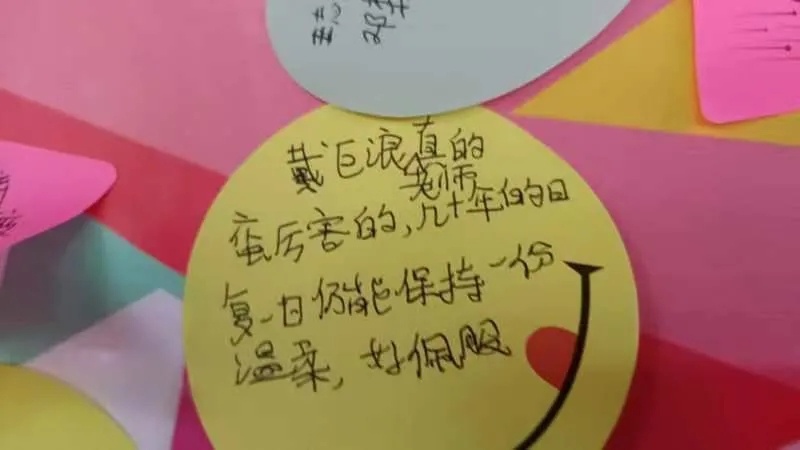 戴巨浪老师真的
蛮厉害的，几十年的日
复一日仍能保持一份
温柔，好佩服